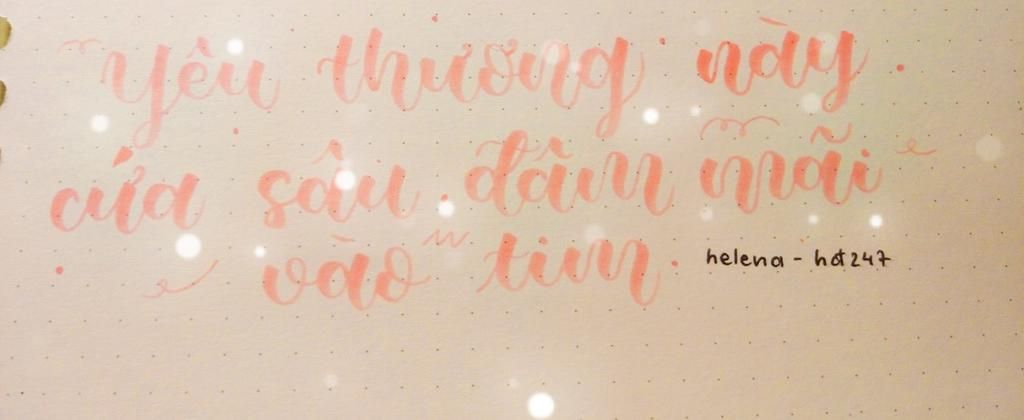 yêu thương này
cứa sâu đâm mãi
vào tim
helena - hot247